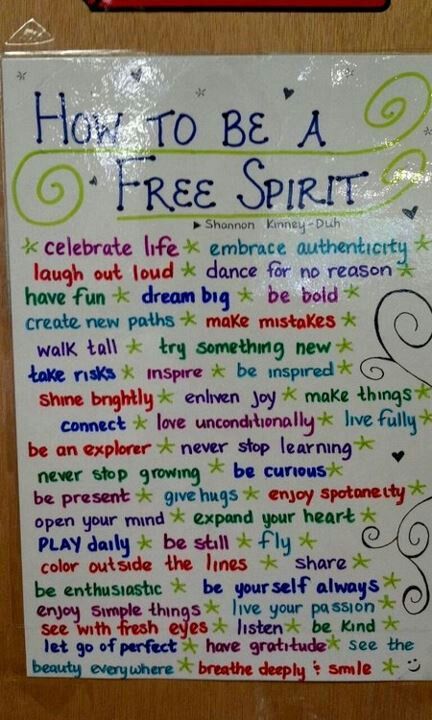 HOW TO BE A
FREE SPIRIT
▶ Shannon Kinney-Duh
* celebrate life * embrace authenticity *
laugh out loud * dance for no reason *
have fun * dream big * be bold *
create new paths * make mistakes *
walk tall * try something new *
take risks * inspire * be inspired *
shine brightly * enliven joy * make things *
connect * love unconditionally * live fully *
be an explorer * never stop learning *
never stop growing * be curious *
be present * give hugs * enjoy spotaneity *
open your mind * expand your heart *
PLAY daily * be still * fly *
color outside the lines * share *
be enthusiastic * be yourself always *
enjoy simple things * live your passion *
see with fresh eyes * listen * be kind *
let go of perfect * have gratitude * see the
beauty everywhere * breathe deeply & smile * ☺